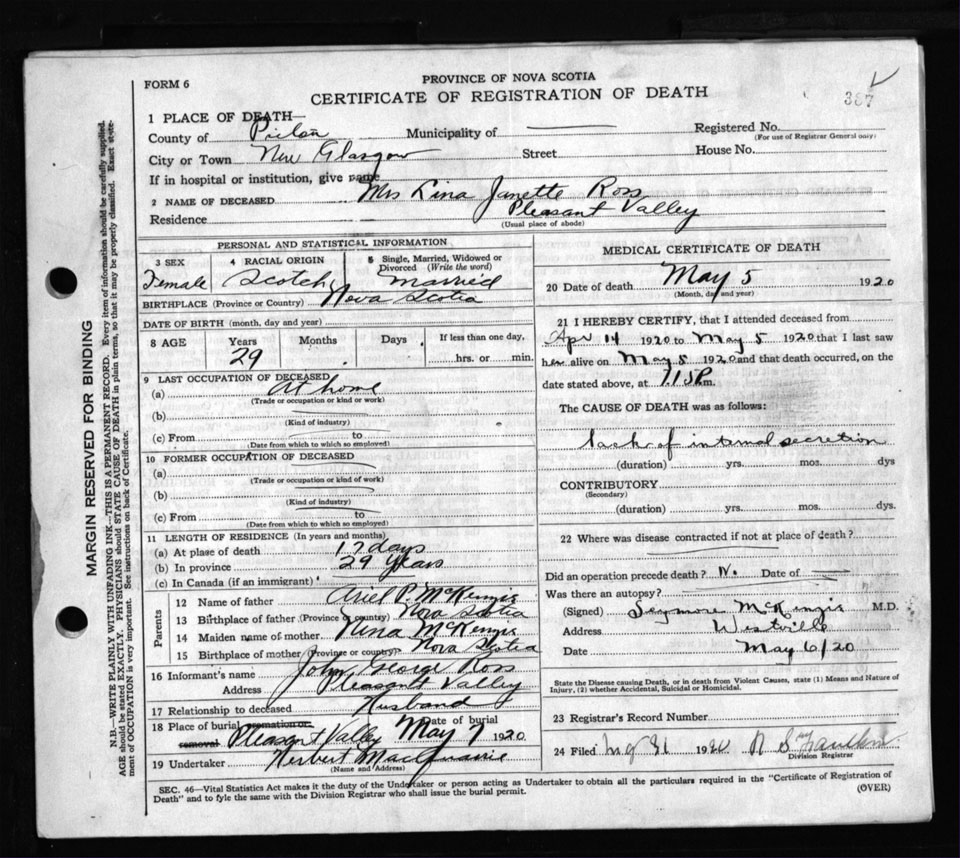 FORM 6
PROVINCE OF NOVA SCOTIA
CERTIFICATE OF REGISTRATION OF DEATH
387
1 PLACE OF DEATH—
County of Pictou Municipality of
Registered No.
(For use of Registrar General only)
City or Town New Glasgow Street House No.
If in hospital or institution, give name
2 NAME OF DECEASED Mrs Lina Janette Ross
Residence Pleasant Valley
(Usual place of abode)
PERSONAL AND STATISTICAL INFORMATION
3 SEX Female
4 RACIAL ORIGIN Scotch
5 Single, Married, Widowed or Divorced (Write the word) married
BIRTHPLACE (Province or Country) Nova Scotia
DATE OF BIRTH (month, day and year)
8 AGE Years 29 Months Days If less than one day, hrs. or min.
9 LAST OCCUPATION OF DECEASED
(a) At home
(Trade or occupation or kind or work)
(b)
(Kind of industry)
(c) From to
(Date from which to which so employed)
10 FORMER OCCUPATION OF DECEASED
(a)
(Trade or occupation or kind of work)
(b)
(Kind of industry)
(c) From to
(Date from which to which so employed)
11 LENGTH OF RESIDENCE (In years and months)
(a) At place of death 17 days
(b) In province 29 years
(c) In Canada (if an immigrant)
Parents
12 Name of father P. McKenzie
13 Birthplace of father (Province or country) Nova Scotia
14 Maiden name of mother McKenzie
15 Birthplace of mother (Province or country) Nova Scotia
16 Informant's name John George Ross
Address Pleasant Valley
17 Relationship to deceased Husband
18 Place of burial cremation or removal Pleasant Valley Date of burial May 7 1920
19 Undertaker Herbert MacQuarrie
(Name and Address)
MEDICAL CERTIFICATE OF DEATH
20 Date of death May 5 1920
(Month, day and year)
21 I HEREBY CERTIFY, that I attended deceased from
Apr 14 1920 to May 5 1920 that I last saw
her alive on May 5 1920 and that death occurred, on the
date stated above, at m.
The CAUSE OF DEATH was as follows:
lack of internal secretion
(duration) yrs. mos. dys
CONTRIBUTORY
(Secondary)
(duration) yrs. mos. dys.
22 Where was disease contracted if not at place of death?
Did an operation precede death? No Date of
Was there an autopsy?
(Signed) McKenzie M.D.
Address Westville
Date May 6/20
State the Disease causing Death, or in death from Violent Causes, state (1) Means and Nature of
Injury, (2) whether Accidental, Suicidal or Homicidal.
23 Registrar's Record Number
24 Filed 1920
Division Registrar
SEC. 46—Vital Statistics Act makes it the duty of the Undertaker or person acting as Undertaker to obtain all the particulars required in the "Certificate of Registration of
Death" and to fyle the same with the Division Registrar who shall issue the burial permit.
(OVER)
MARGIN RESERVED FOR BINDING
N.B.—WRITE PLAINLY WITH UNFADING INK—THIS IS A PERMANENT RECORD. Every item of information should be carefully supplied.
AGE should be stated EXACTLY. PHYSICIANS should STATE CAUSE OF DEATH in plain terms, so that it may be properly classified. Exact statement
of OCCUPATION is very important. See instructions on back of Certificate.